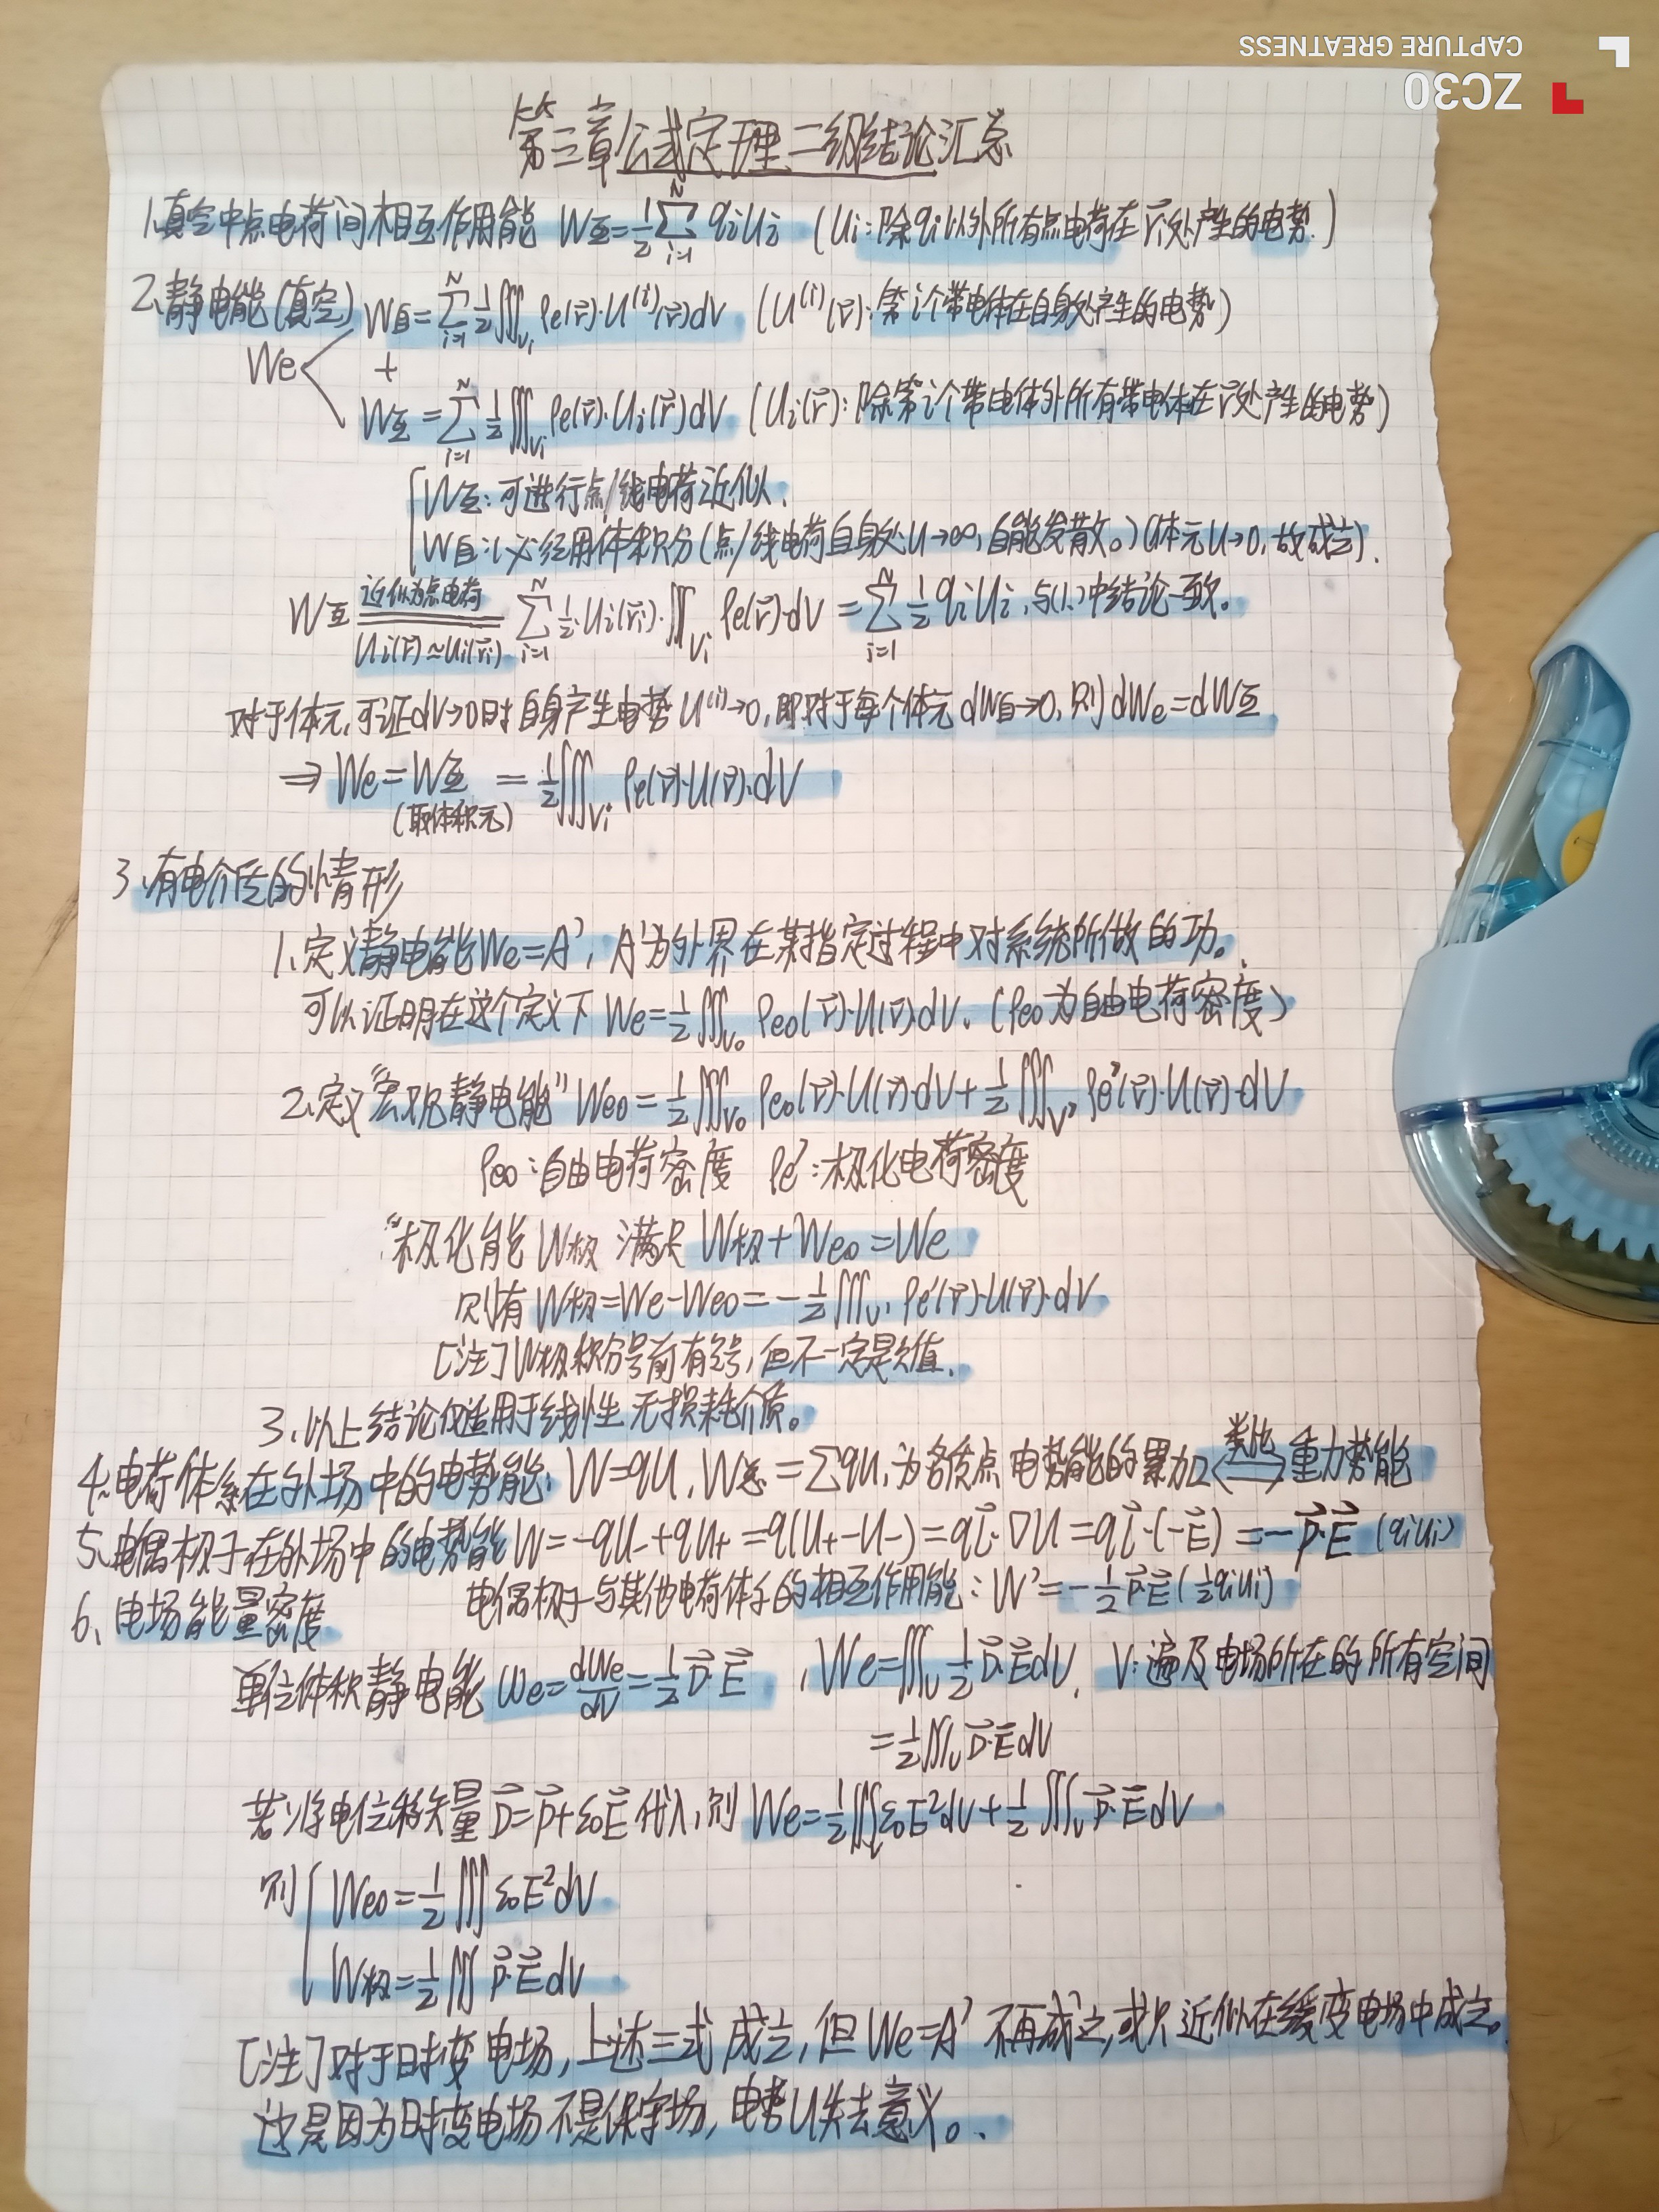 ZC30
CAPTURE GREATNESS
第三章公式定理二级结论汇总
1.真空中点电荷间相互作用能 W互=½∑_{i=1}^{N} qiUi (Ui:除qi以外所有点电荷在r⃗i处产生的电势.)
2.静电能(真空) W自=∑_{i=1}^{N}½∭_{Vi} ρe(r⃗)·U^{(i)}(r⃗)dV (U^{(i)}(r⃗):第i个带电体在自身处产生的电势)
We< +
W互=∑_{i=1}^{N}½∭_{Vi} ρe(r⃗)·Ui(r⃗)dV (Ui(r⃗):除第i个带电体外所有带电体在r⃗处产生的电势)
W互:可进行点/线电荷近似.
W自:必经用体积分(点/线电荷自身处U→∞,自能发散。)(体元U→0,故成立).
W互 近似为点电荷 Ui(r⃗)≈Ui(r⃗i) ∑_{i=1}^{N}½·Ui(r⃗i)·∭_{Vi} ρe(r⃗)·dV=∑_{i=1}^{N}½qiUi,与(1.)中结论一致。
对于体元,可证dV→0时自身产生电势U^{(i)}→0,即对于每个体元dW自→0,则dWe=dW互
⇒ We=W互 =½∭_{Vi} ρe(r⃗)·U(r⃗)·dV
(取体积元)
3.有电介质的情形
1.定义静电能We=A',A'为外界在某指定过程中对系统所做的功。
可以证明在这个定义下We=½∭_{V0} ρe0(r⃗)·U(r⃗)dV.(ρe0为自由电荷密度)
2.定义“宏观静电能”We0=½∭_{V0} ρe0(r⃗)·U(r⃗)dV+½∭_{V'} ρe'(r⃗)·U(r⃗)·dV
ρe0:自由电荷密度 ρe':极化电荷密度
“极化能W极 满足W极+We0=We
则有W极=We-We0=-½∭_{V'} ρe'(r⃗)·U(r⃗)·dV
[注]W极积分号前有负号,但不一定是负值.
3.以上结论仅适用于线性无损耗介质。
4.电荷体系在外场中的电势能:W=qU,W总=∑qU,为各质点电势能的累加 类比⟺ 重力势能
5.电偶极子在外场中的电势能W=-qU₋+qU₊=q(U₊-U₋)=ql⃗·∇U=ql⃗·(-E⃗)=-p⃗·E⃗ (qiUi)
电偶极子与其他电荷体系的相互作用能:W'=-½p⃗·E⃗(½qiUi)
6、电场能量密度
单位体积静电能 We=dWe/dV=½D⃗·E⃗ ,We=∭_V½D⃗·E⃗dV, V:遍及电场所在的所有空间
=½∭_V D⃗·E⃗dV
若将电位移矢量D⃗=P⃗+ε0E⃗代入,则 We=½∭_V ε0E²dV+½∭_V P⃗·E⃗dV
则 We0=½∭ε0E²dV
W极=½∭P⃗·E⃗dV
[注]对于时变电场,上述三式成立,但We=A'不再成立,或只近似在缓变电场中成立。
这是因为时变电场不是保守场,电势U失去意义。